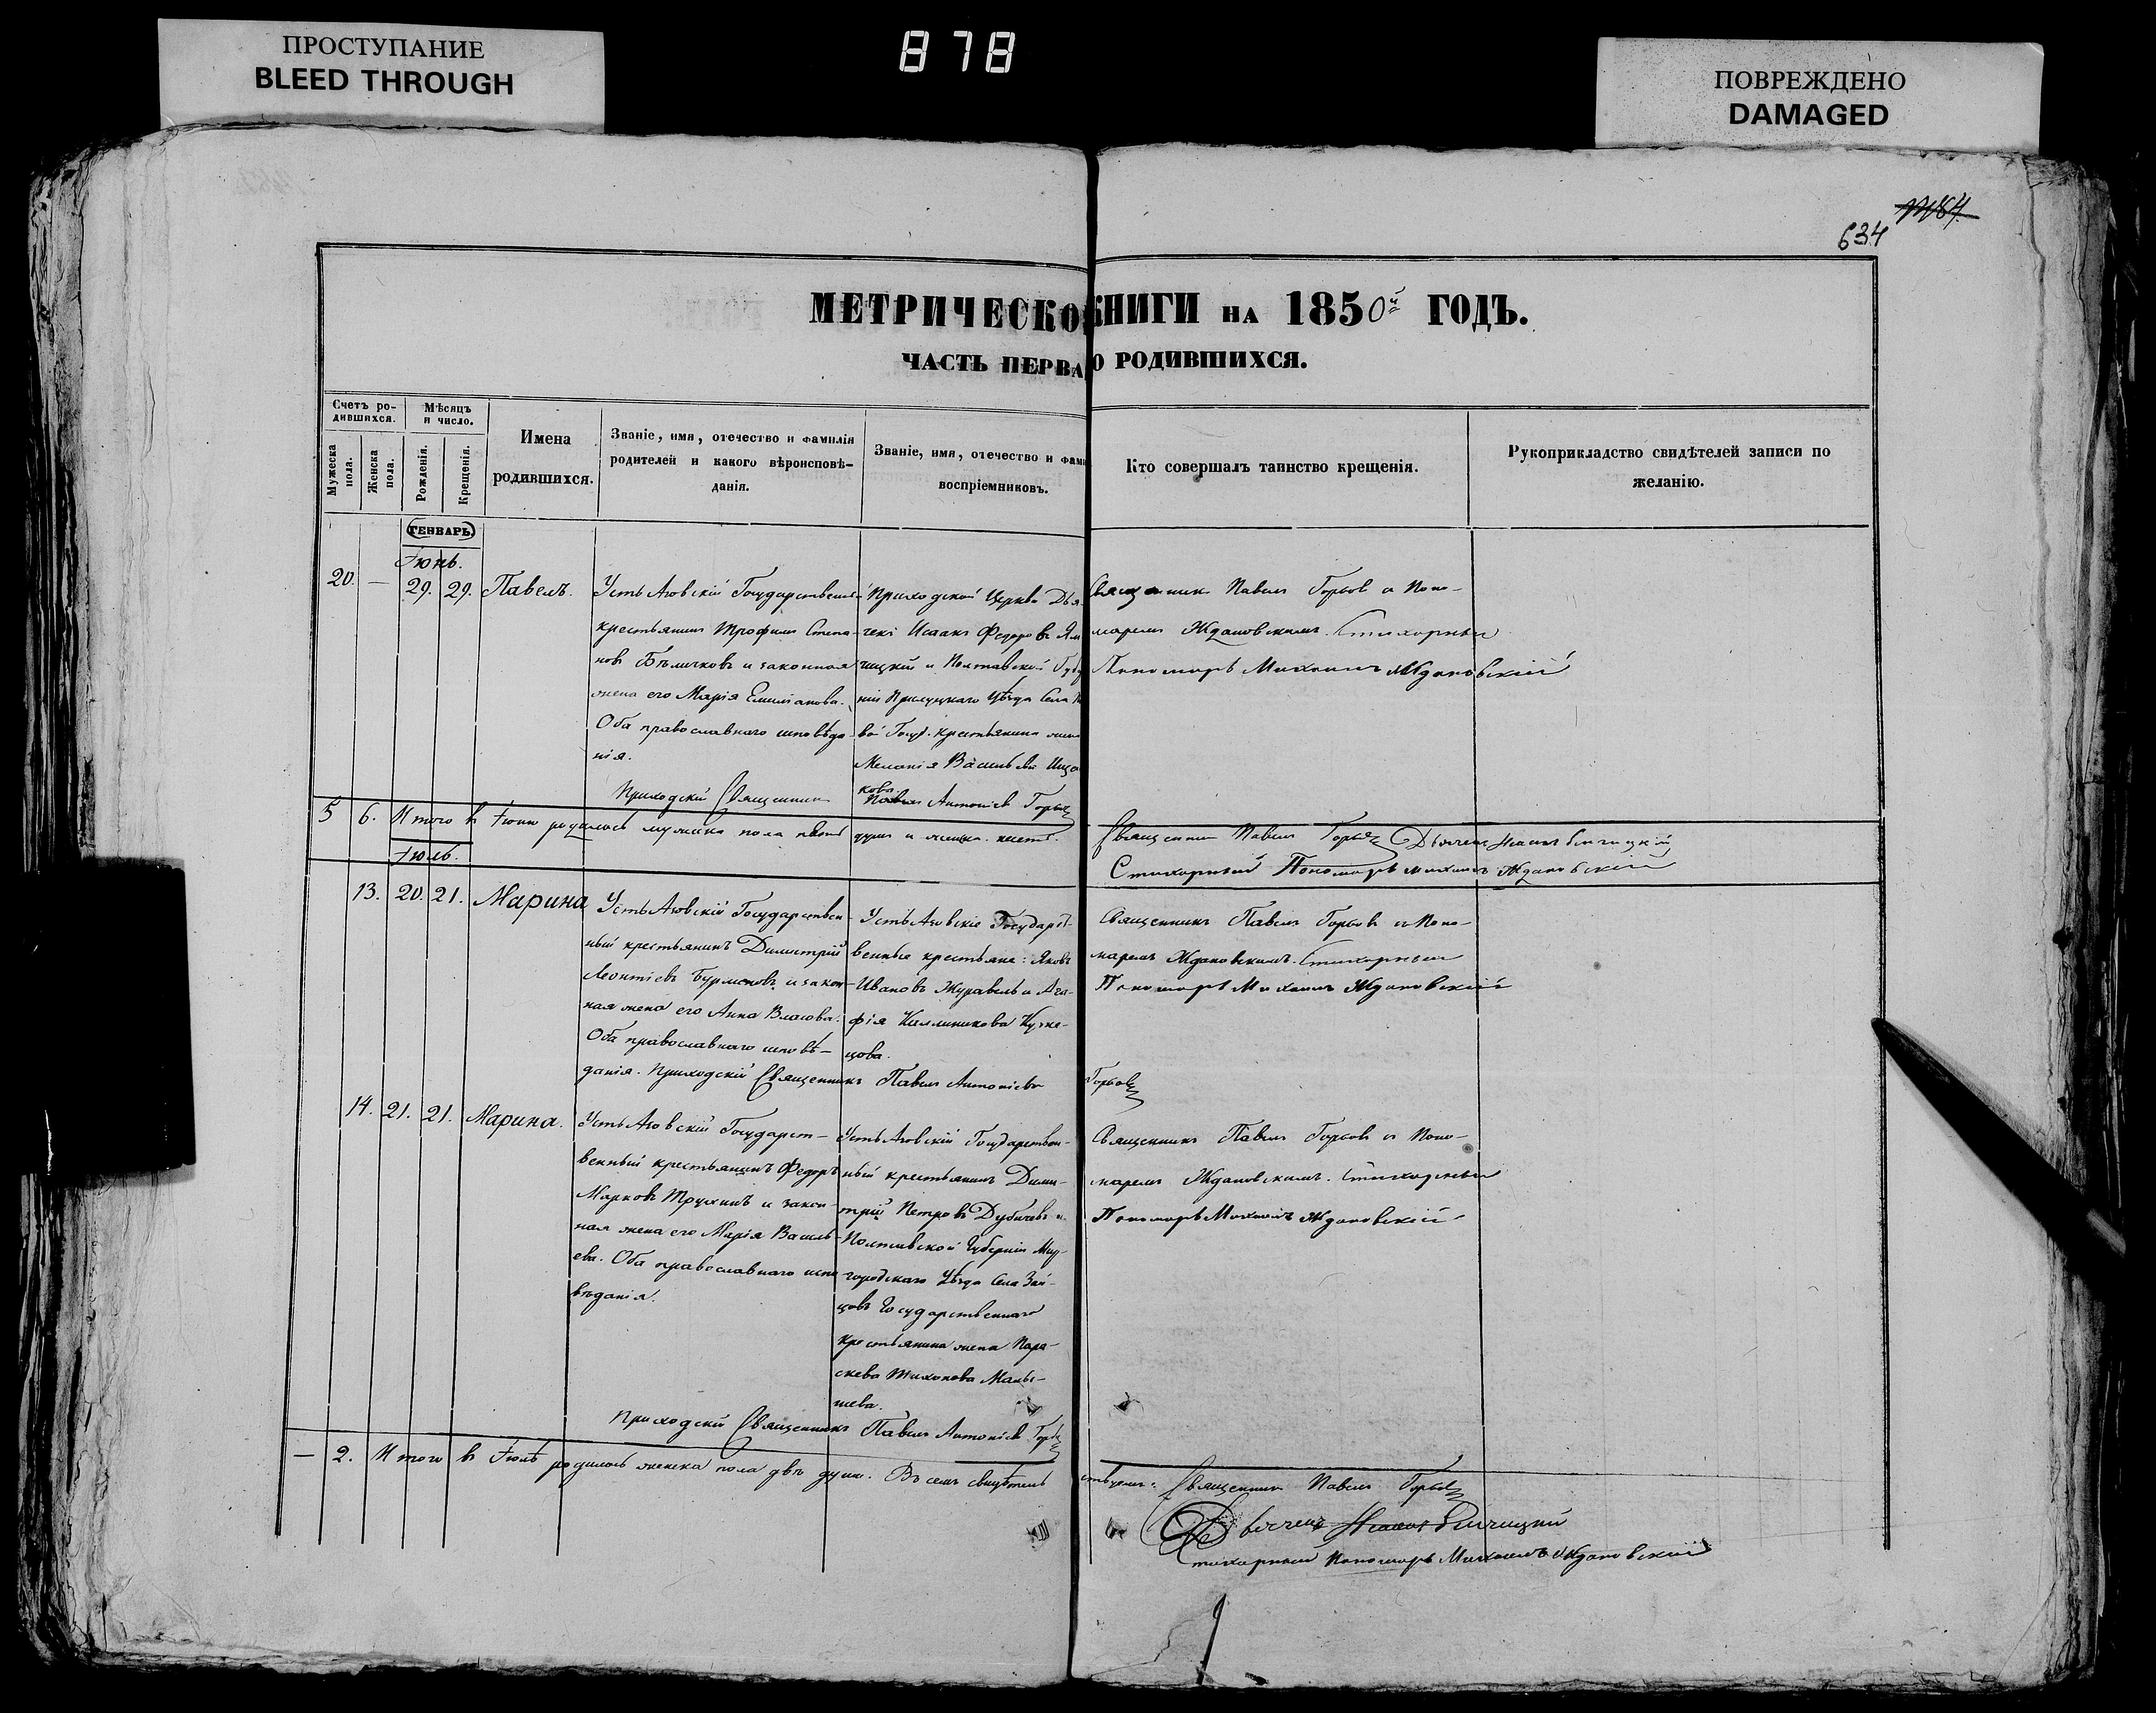 ПРОСТУПАНИЕ
BLEED THROUGH
878
ПОВРЕЖДЕНО
DAMAGED
634
МЕТРИЧЕСКО КНИГИ НА 1850й ГОДЪ.
ЧАСТЬ ПЕРВА О РОДИВШИХСЯ.
Счетъ ро-
дившихся.
Мужеска
пола.
Женска
пола.
Мѣсяцъ
и число.
Рожденія.
Крещенія.
Имена
родившихся.
Званіе, имя, отечество и фамилія
родителей и какого вѣроисповѣ-
данія.
Званіе, имя, отечество и фам
воспріемниковъ.
Кто совершалъ таинство крещенія.
Рукоприкладство свидѣтелей записи по
желанію.
ГЕНВАРЬ
Іюнь.
20. — 29. 29. Павелъ.
Государствен-
крестьянинъ Трофимъ Степа-
новъ Бѣличковъ и законная
жена его Марія Емиліанова.
Оба православнаго исповѣда-
нія.
Приходской Церкви Дья
чекъ Исаакъ Федоровъ
чицкій и Полтавской Губер
ніи Прилуцкаго Уѣзда Села
вой Госуд. крестьянина жена
Меланія Васильева
кова.
Священникъ Павелъ Горбовъ с Поно-
маремъ Ждановскимъ. Стихарный
Пономарь Михаилъ Ждановскій
Приходскій Священникъ Павелъ Антоніевъ Горбовъ
5 6. Итого в Іюнѣ родилось мужеска пола пять душъ и женска шесть.
Священникъ Павелъ Горбовъ Дьячекъ Исаакъ
Стихарный Пономарь Михаилъ Ждановскій
Іюль.
13. 20. 21. Марина
Государствен-
ный крестьянинъ Димитрій
Леонтіевъ Бурлаковъ и закон-
ная жена его Анна Власова.
Оба православнаго исповѣ-
данія. Приходскій Священникъ Павелъ Антоніевъ Горбовъ
Государст-
венные крестьяне: Яковъ
Ивановъ Журавель и Ага-
фія Каллиникова Кузне-
цова.
Священникъ Павелъ Горбовъ с Поно-
маремъ Ждановскимъ. Стихарный
Пономарь Михаилъ Ждановскій
14. 21. 21. Марина.
Государст-
венный крестьянинъ Федоръ
Марковъ Трухинъ и закон-
ная жена его Марія Василь-
ева. Оба православнаго испо-
вѣданія.
Государствен-
ный крестьянинъ Дими-
трій Петровъ Дубичевъ и
Полтавской Губерніи Мир-
городскаго Уѣзда Села Зай-
цовъ Государственнаго
крестьянина жена Пара-
скева Тихонова Малы-
шева.
Священникъ Павелъ Горбовъ с Поно-
маремъ Ждановскимъ. Стихарный
Пономарь Михаилъ Ждановскій
Приходскій Священникъ Павелъ Антоніевъ Горбовъ
— 2. Итого в Іюлѣ родилось женска пола двѣ души. Въ семъ свидѣтель
ствуемъ: Священникъ Павелъ Горбовъ
Дьячекъ Исаакъ
Стихарный Пономарь Михаилъ Ждановскій